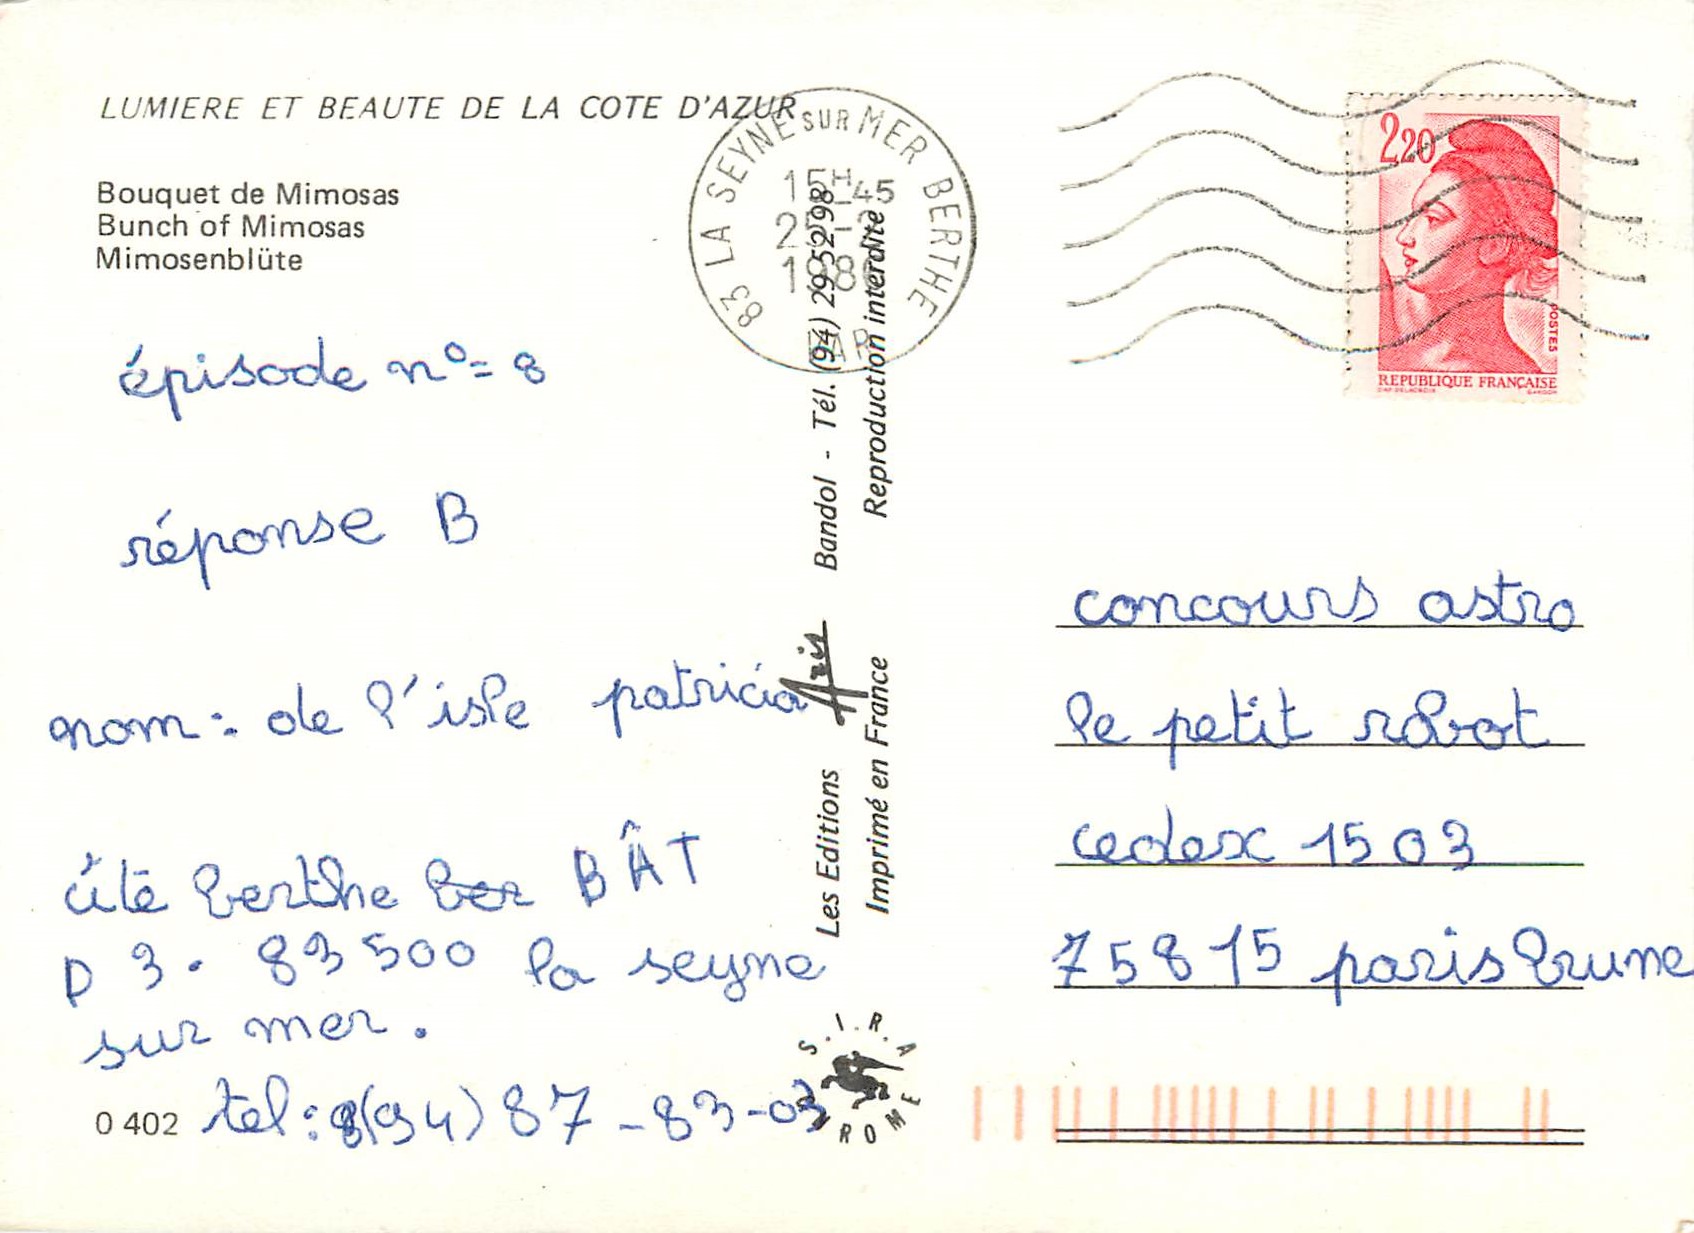 LUMIERE ET BEAUTE DE LA COTE D'AZUR
Bouquet de Mimosas
Bunch of Mimosas
Mimosenblüte
épisode n°= 8
réponse B
nom : de l'isle patricia
cité berthe ber BÂT
D 3. 83500 la seyne
sur mer.
tel : 8(94) 87-83-03
0 402
Les Editions Aris Bandol - Tél. (94) 29 52 98
Imprimé en France Reproduction interdite
S.I.R.A
83 LA SEYNE SUR MER BERTHE
15H45
VAR
2,20
POSTES
REPUBLIQUE FRANÇAISE
concours astro
le petit robot
cedex 1503
75815 paris brune